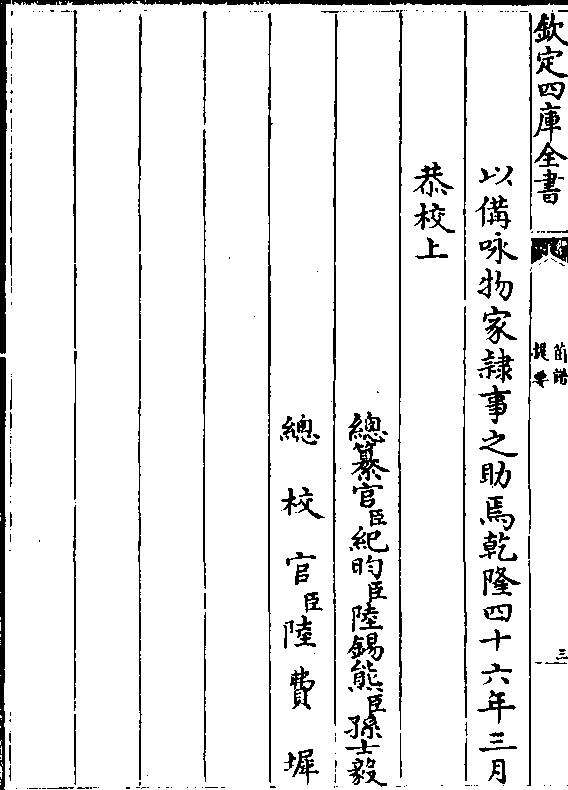 欽定四庫全書
菌譜
提要
三
以備咏物家隷事之助焉乾隆四十六年三月
恭校上
總纂官臣紀昀臣陸錫熊臣孫士毅
總校官臣陸費墀